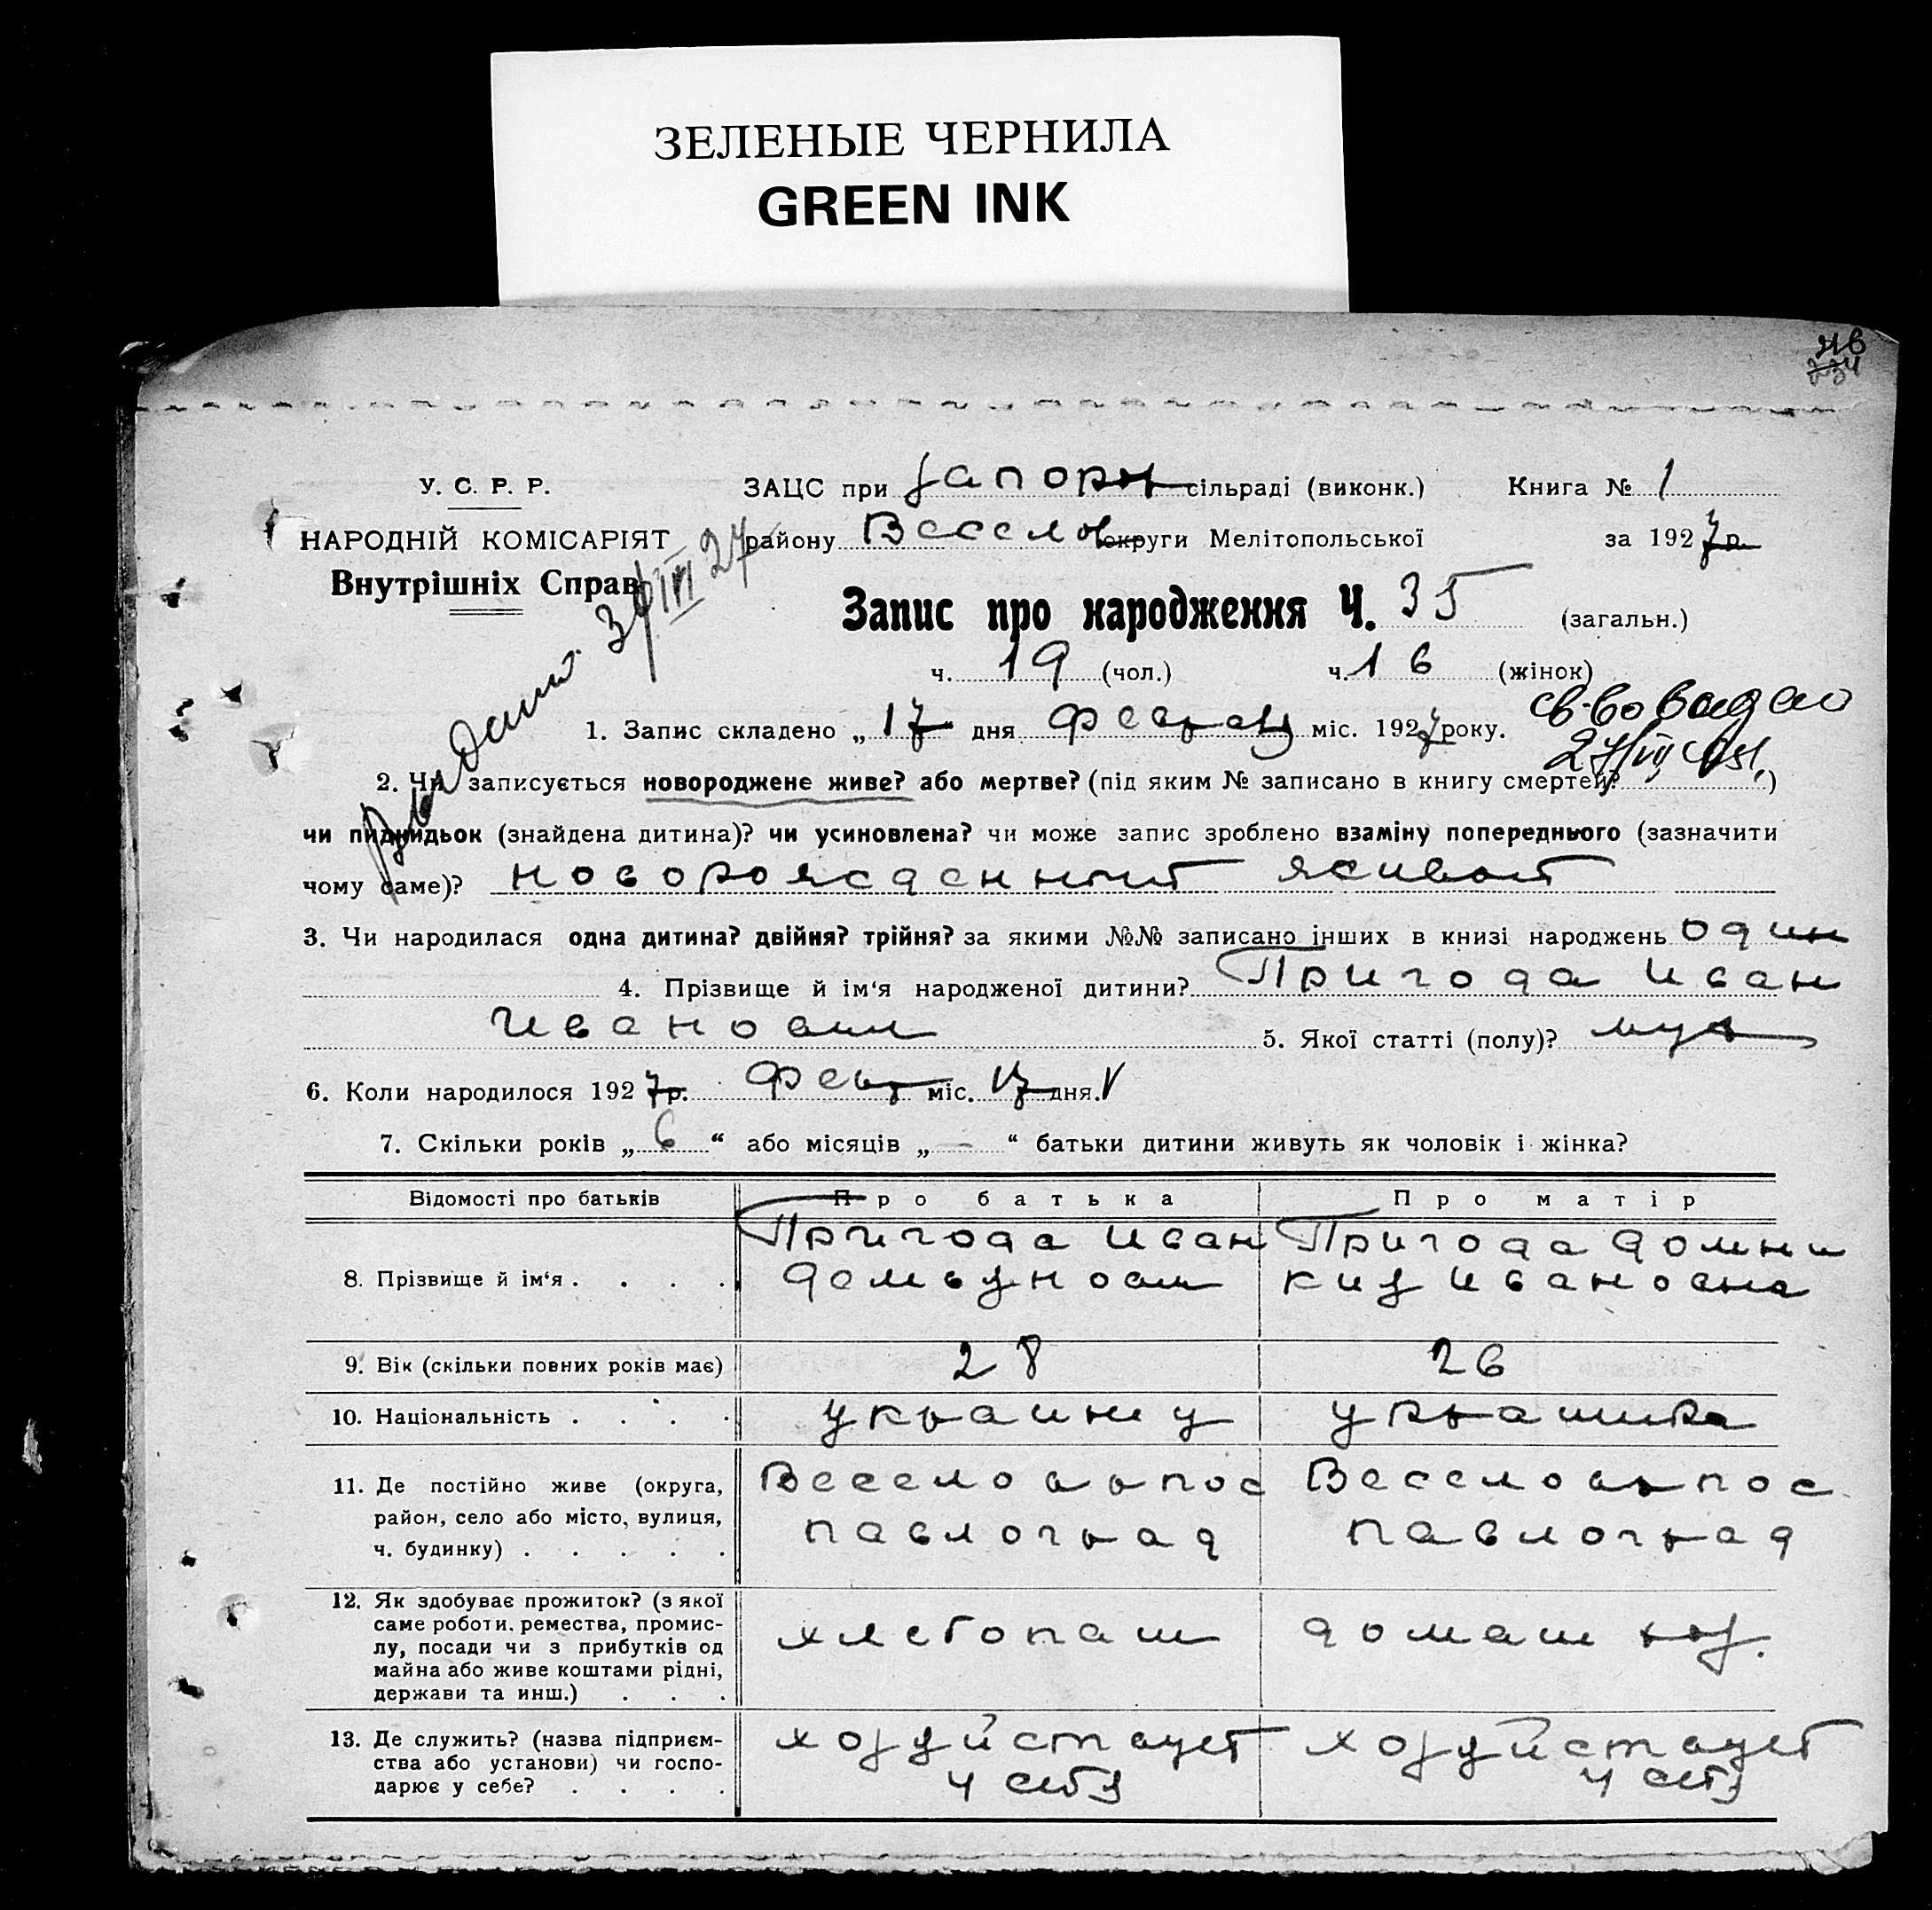 ЗЕЛЕНЫЕ ЧЕРНИЛА
GREEN INK
У. С. Р. Р.
НАРОДНІЙ КОМІСАРІЯТ
Внутрішніх Справ
ЗАЦС при запорж сільраді (виконк.) Книга № 1
району Веселов округи Мелітопольської за 1927 р.
Запис про народження Ч. 35 (загальн.)
ч. 19 (чол.) ч. 16 (жінок)
1. Запис складено „ 17 дня февраля міс. 1927 року.
2. Чи записується новороджене живе? або мертве? (під яким № записано в книгу смертей? )
чи пидкидьок (знайдена дитина)? чи усиновлена? чи може запис зроблено взаміну попереднього (зазначити
чому саме)? новорожденный живой
3. Чи народилася одна дитина? двійня? трійня? за якими №№ записано інших в книзі народжень один
4. Прізвище й ім'я народженої дитини? Пригода Иван
Иванович 5. Якої статті (полу)? муж
6. Коли народилося 1927 р. Фев міс. 17 дня.
7. Скільки років „ 6 “ або місяців „ — “ батьки дитини живуть як чоловік і жінка?
Відомості про батьків Про батька Про матір
8. Прізвище й ім'я . . . . Пригода Иван Пригода Домни
кия Ивановна
9. Вік (скільки повних років має) 28 26
10. Національність . . . . украинец украинка
11. Де постійно живе (округа, район, село або місто, вулиця, ч. будинку) . . . . .
Веселовр пос Веселовр пос
павлоград павлоград
12. Як здобуває прожиток? (з якої саме роботи, ремества, промислу, посади чи з прибутків од майна або живе коштами рідні, держави та инш.) . . .
хлебопаш домаш хоз.
13. Де служить? (назва підприємства або установи) чи господарює у себе? . . . .
хозуйствует хозуйствует
у себя у себя